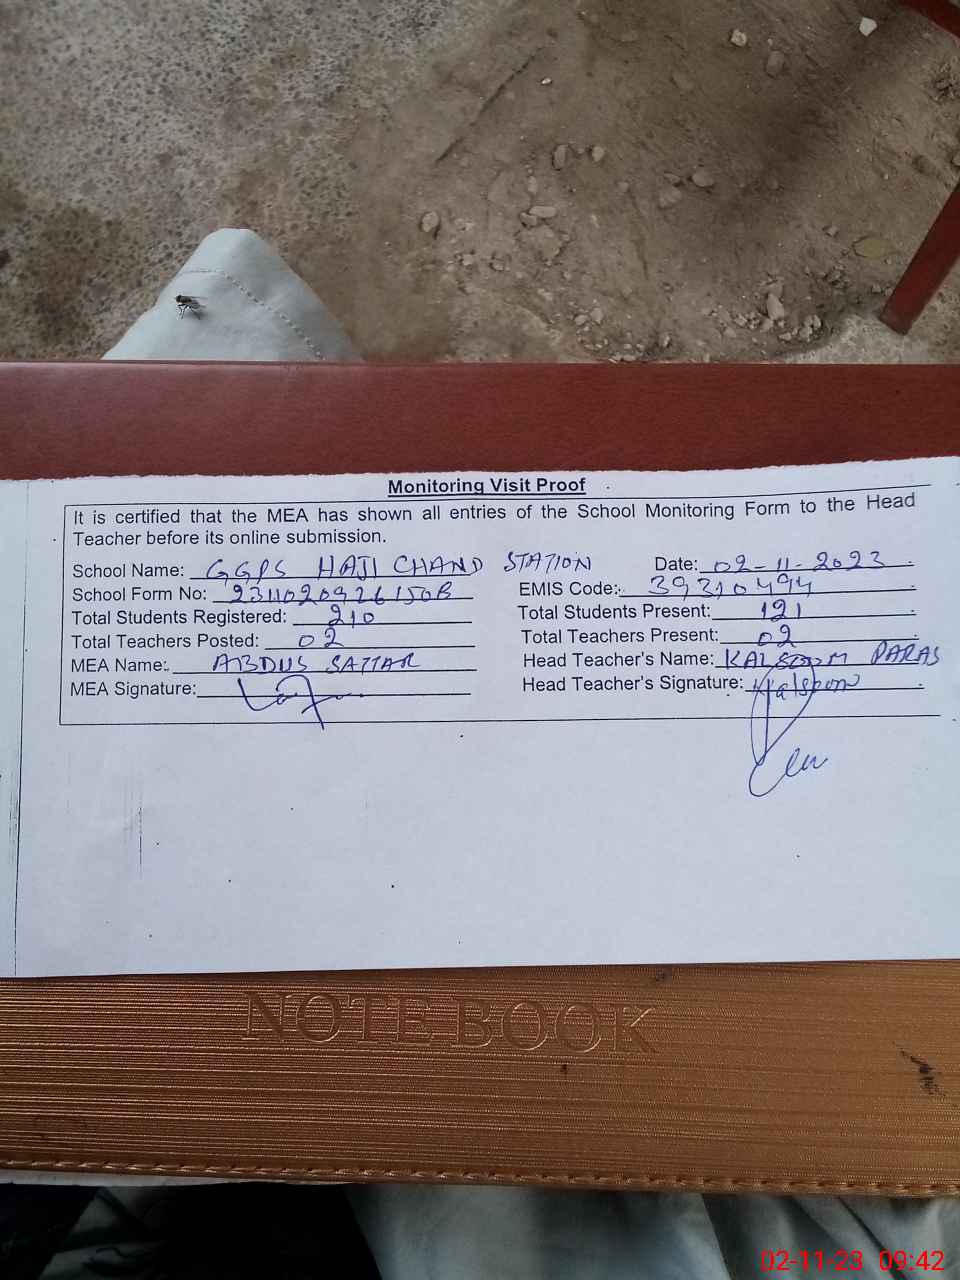 Monitoring Visit Proof
It is certified that the MEA has shown all entries of the School Monitoring Form to the Head
Teacher before its online submission.
School Name: GGPS HAJI CHAND STATION Date: 02-11-2023
School Form No: EMIS Code: 39310494
Total Students Registered: 210 Total Students Present: 121
Total Teachers Posted: 02 Total Teachers Present: 02
MEA Name: ABDUS SATTAR Head Teacher's Name: KALSOOM PARAS
MEA Signature: Head Teacher's Signature: Kalsoom
NOTE BOOK
02-11-23 09:42